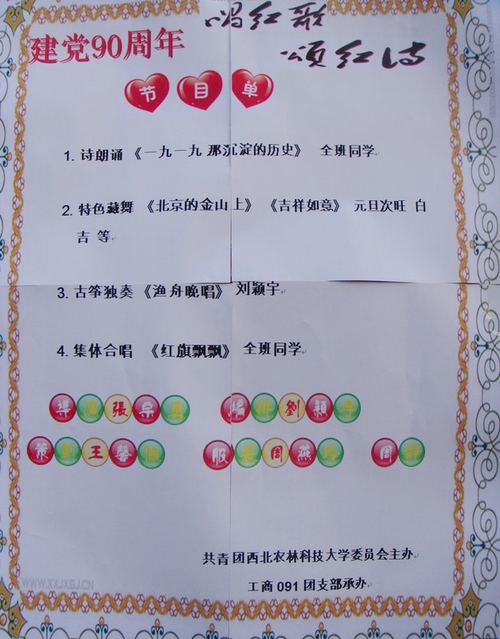 唱红歌
建党90周年
颂红诗
节目单
1. 诗朗诵 《一九一九 那沉淀的历史》 全班同学
2. 特色藏舞 《北京的金山上》 《吉祥如意》 元旦次旺 白
吉 等
3. 古筝独奏 《渔舟晚唱》 刘颖宇
4. 集体合唱 《红旗飘飘》 全班同学
張 劉
王馨 服 周燕 周
共青团西北农林科技大学委员会主办
工商 091 团支部承办
WWW.XXJXSJ.CN